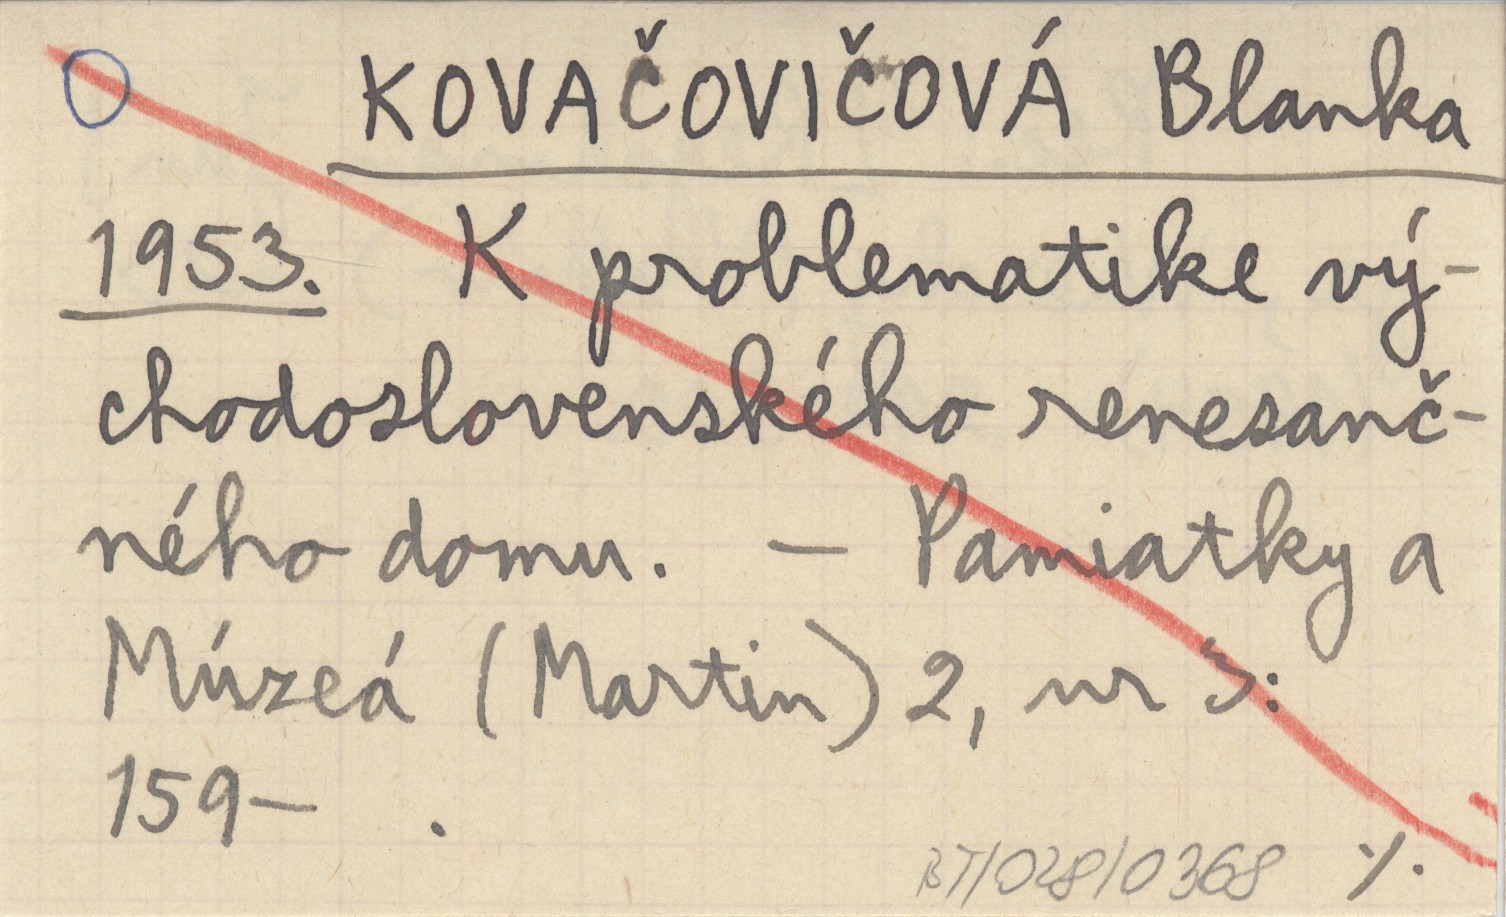 KOVAČOVIČOVÁ Blanka
1953. K problematike vý-
chodoslovenského renesanč-
ného domu. — Pamiatky a
Múzeá (Martin) 2, nr 3:
159— .
BT/028/0368 ./.